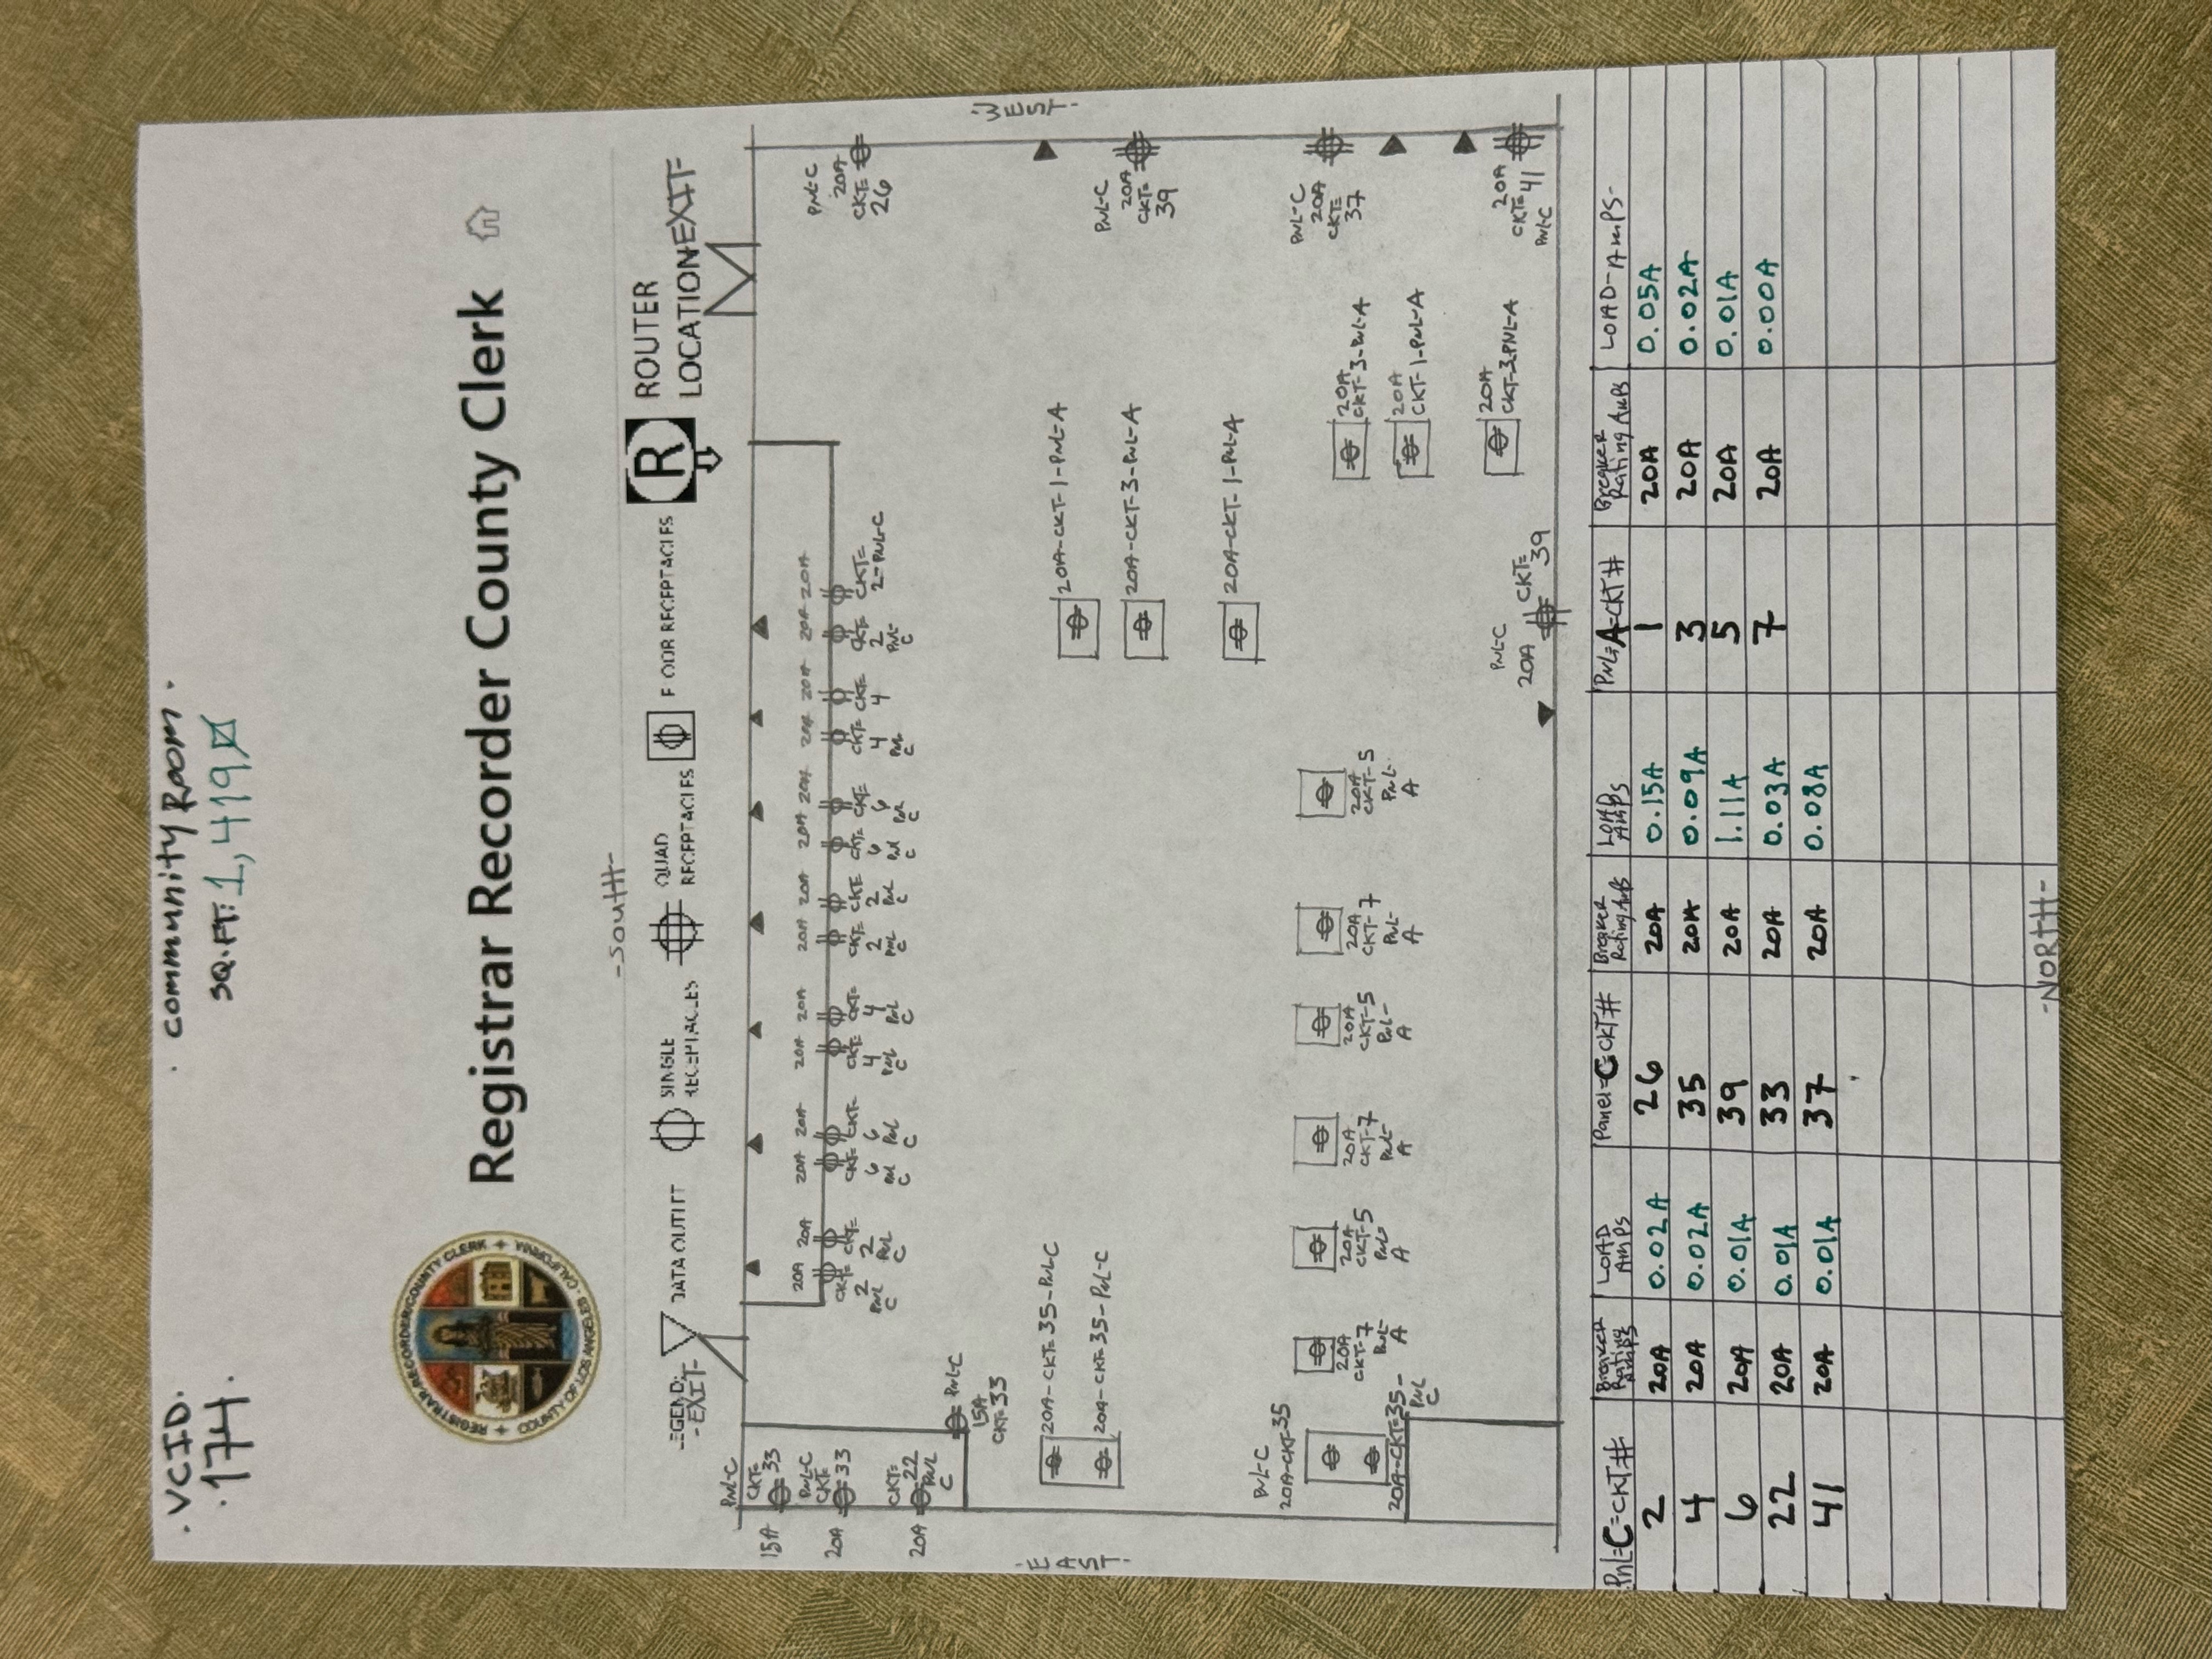 . VCID.
. 174.
. community Room .
SQ.FT: 1,419
REGISTRAR-RECORDER/COUNTY CLERK
COUNTY OF LOS ANGELES - CALIFORNIA
Registrar Recorder County Clerk
-South-
LEGEND:
DATA OUTLET
SINGLE
RECEPTACLES
QUAD
RECEPTACLES
FLOOR RECEPTACLES
R
ROUTER
LOCATION
-EXIT-
-EXIT-
PNL-C
CKT=
33
15A
PNL-C
CKT=
33
20A
CKT=
22
PNL
C
20A
PNL-C
15A
CKT=33
20A
CKT=
2
PNL
C
20A
CKT=
2
PNL
C
20A
CKT=
6
PNL
C
20A
CKT=
6
PNL
C
20A
CKT=
4
PNL
C
20A
CKT=
4
PNL
C
20A
CKT=
2
PNL
C
20A
CKT=
2
PNL
C
20A
CKT=
6
PNL
C
20A
CKT=
6
PNL
C
20A
CKT=
4
PNL
C
20A
CKT=
4
20A
CKT=
2
PNL-
C
20A
CKT=
2-PNL-C
PNL-C
20A
CKT=
26
WEST.
PNL-C
20A
CKT=
39
PNL-C
20A
CKT=
37
20A
CKT=41
PNL-C
EAST.
20A-CKT=35-PNL-C
20A-CKT=35-PNL-C
20A-CKT-1-PNL-A
20A-CKT-3-PNL-A
20A-CKT-1-PNL-A
20A
CKT-3-PNL-A
20A
CKT-1-PNL-A
20A
CKT-3-PNL-A
PNL-C
20A-CKT-35
20A-CKT=35-
PNL
C
20A
CKT-7
PNL-
A
20A
CKT-5
PNL-
A
20A
CKT-7
PNL-
A
20A
CKT-5
PNL-
A
20A
CKT-7
PNL-
A
20A
CKT-5
PNL-
A
PNL-C
20A
CKT=
39
PNL=C=CKT# Breaker Rating Amps LOAD AMPS Panel=C=CKT# Breaker Rating Amps LOAD AMPS PNL=A=CKT# Breaker Rating Amps LOAD-AMPS-
2 20A 0.02A 26 20A 0.15A 1 20A 0.05A
4 20A 0.02A 35 20A 0.09A 3 20A 0.02A
6 20A 0.01A 39 20A 1.11A 5 20A 0.01A
22 20A 0.01A 33 20A 0.03A 7 20A 0.00A
41 20A 0.01A 37 20A 0.08A
-NORTH-